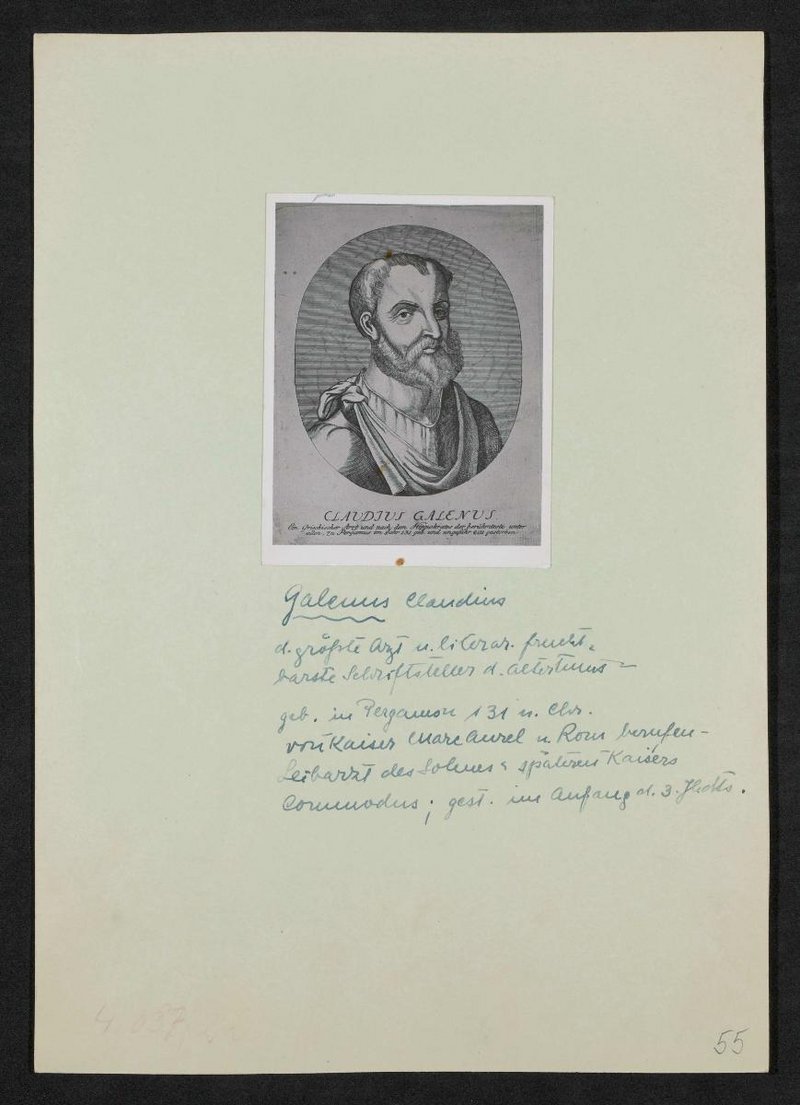 CLAUDIUS GALENUS
Ein Griechischer Artzt und nach dem Hippocrates der berühmteste unter
allen. Zu Pergamus im Jahr 131 geb. und ungefehr gestorben.
Galenus Claudius
d. größte Arzt u. literar. frucht-
barste Schriftsteller d. Altertums -
geb. in Pergamon 131 n. Chr.
von Kaiser Marc Aurel n. Rom berufen -
Leibarzt des Sohnes u. späteren Kaisers
Commodus; gest. im Anfang d. 3. Jhdts.
4 037
55